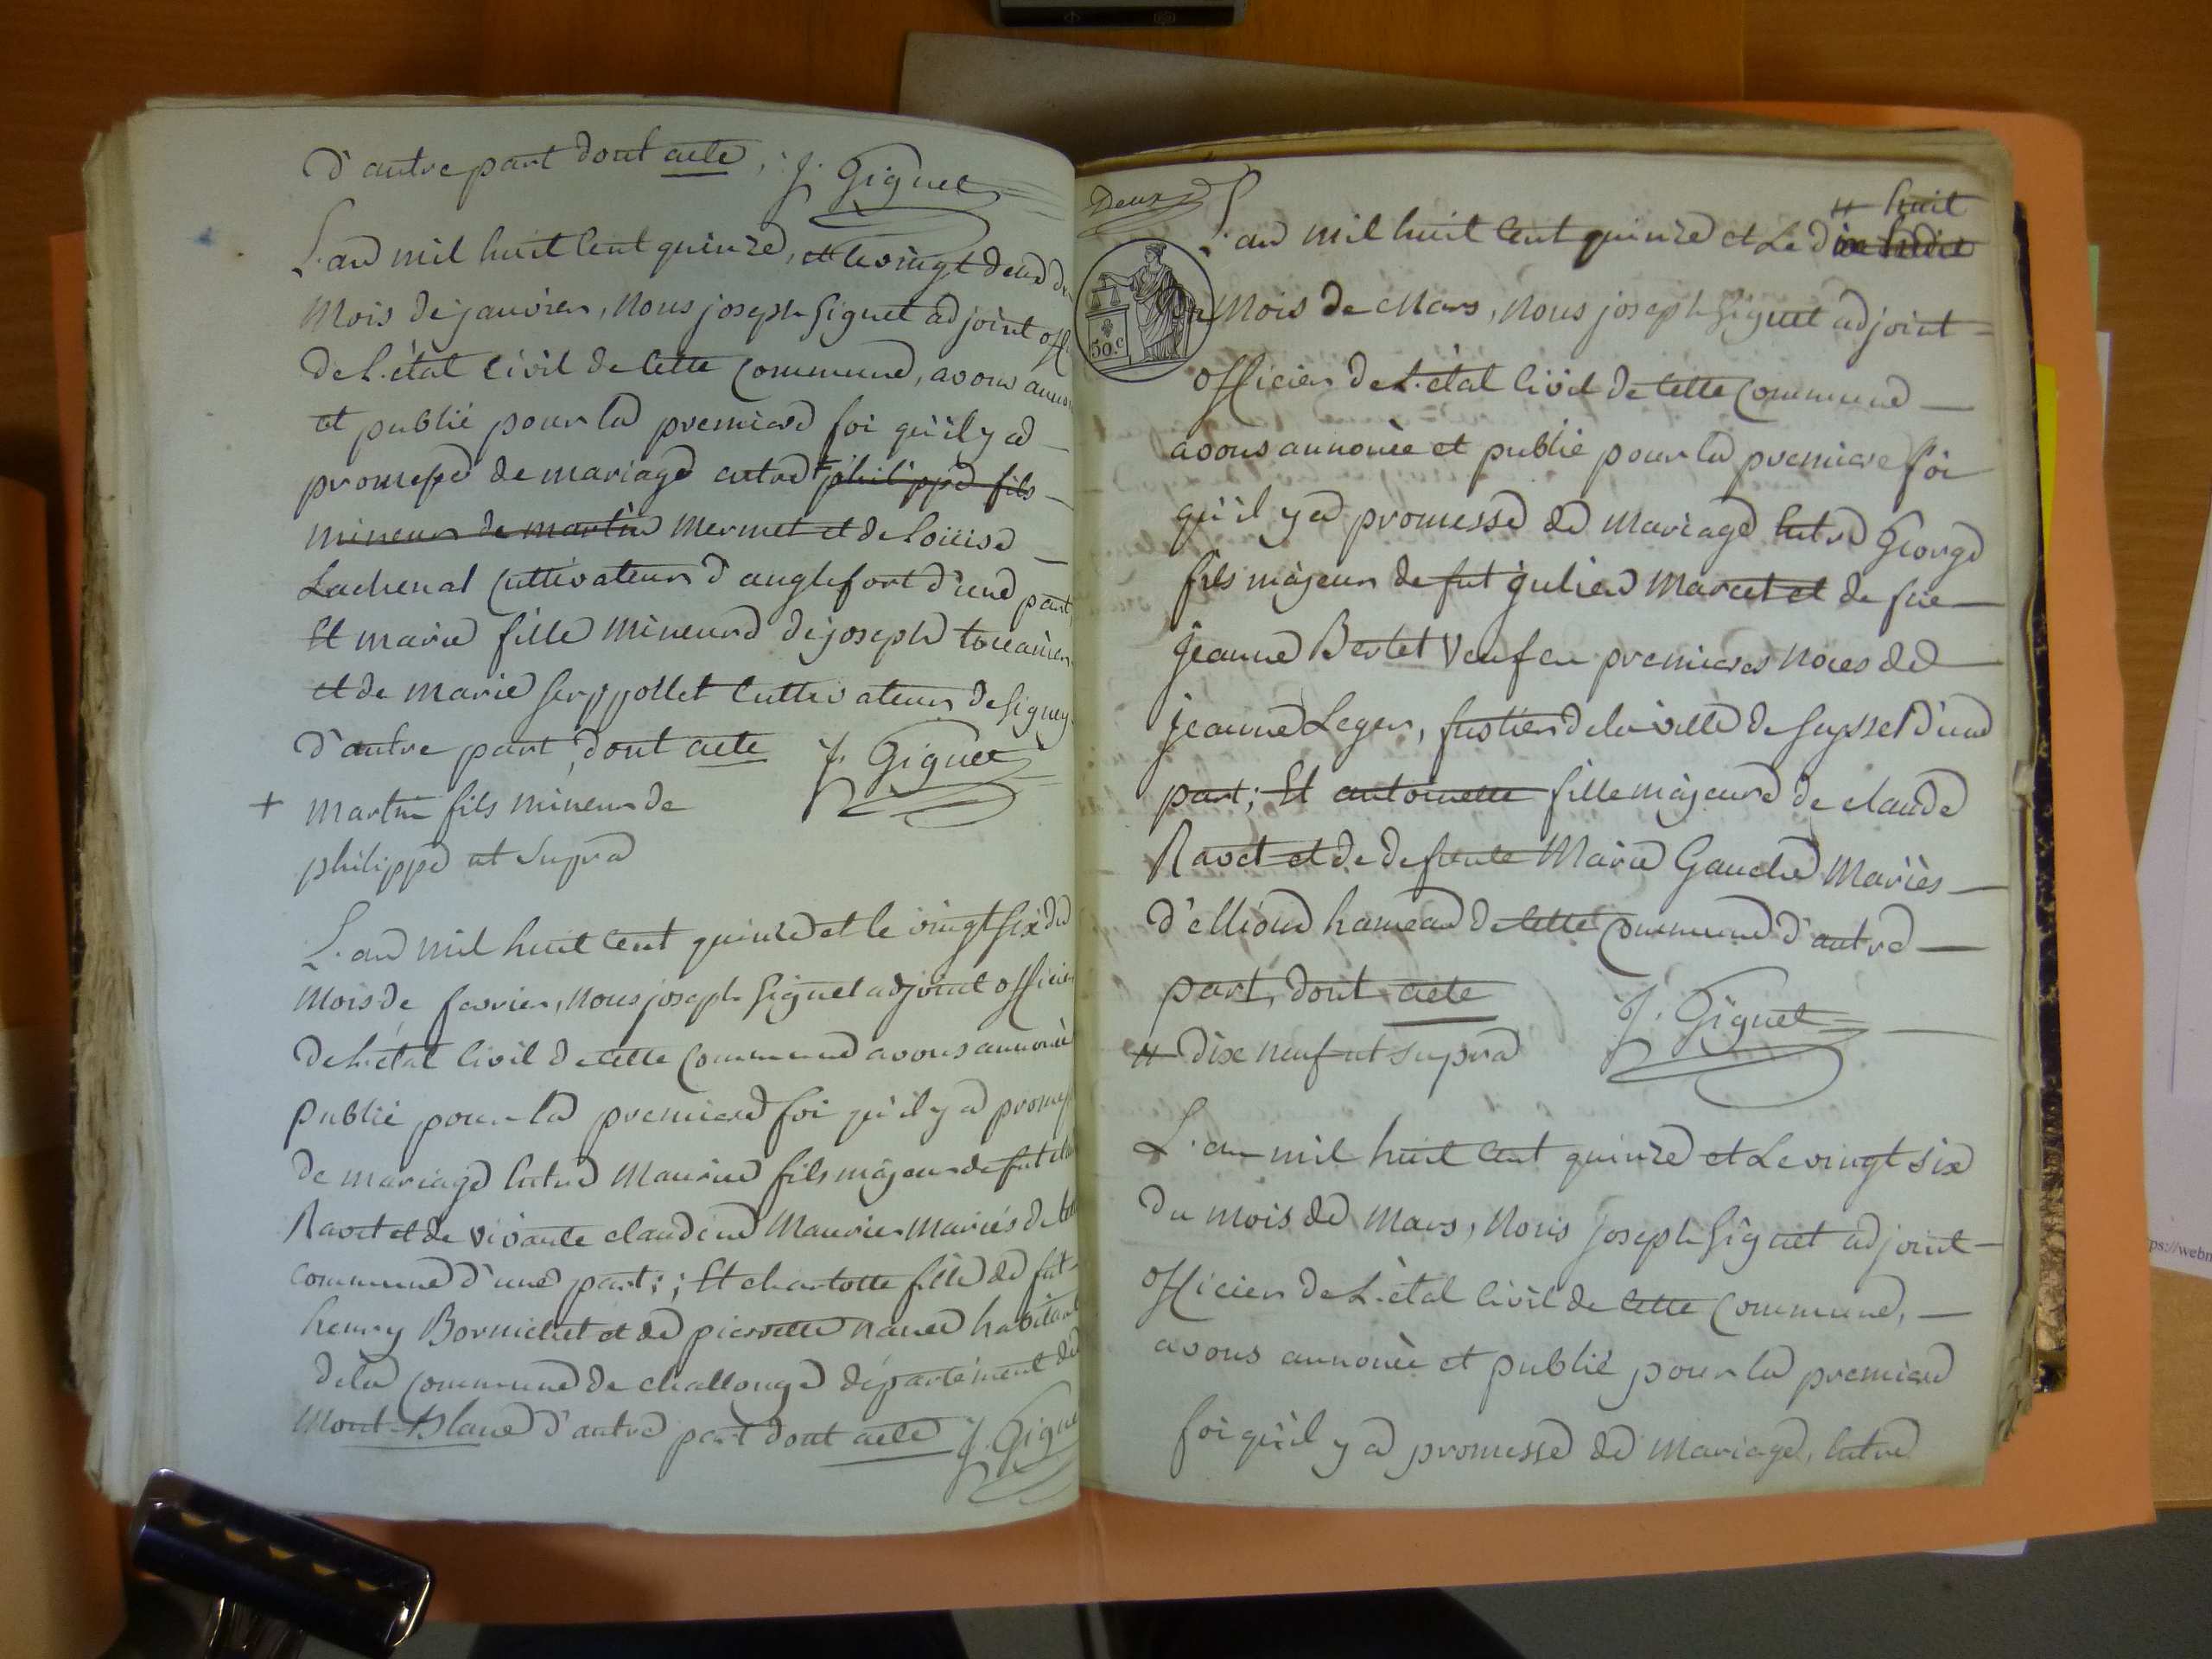 d'autre part dont acte, J. Giguet
L'an mil huit cent quinze, et le vingt deux du
mois de janvier, nous joseph Giguet adjoint offi
de l'état civil de cette commune, avons anno
et publié pour la premiere foi qu'il y a
promesse de mariage entre + philippe fils
mineur de martin mermet et de Louise
Lachenal cultivateur d'anglefort d'une part
Et marie fille mineure de joseph
et de marie Serppollet cultivateur de Gigney
d'autre part, dont acte J. Giguet
+ martin fils mineur de
philippe ut supra
L'an mil huit cent quinze et le vingt six du
mois de fevrier, nous joseph Giguet adjoint officier
de l'état civil de cette commune avons annoncé
publié pour la premiere foi qu'il y a promess
de mariage entre Maurice fils majeur de fut
Ravet et de vivante claudine Maurier mariés de
commune d'une part; ; Et charlotte fille de fut
henry Bornichet et de pierrette habitant
de la commune de challonge département du
Mont-Blanc d'autre part dont acte J. Gigue
Deux
" huit
L'an mil huit cent quinze et Le dix
du Mois de Mars, Nous joseph Giguet adjoint
officier de L'état civil de cette commune
avons annoncé et publié pour la premiere foi
qu'il y a promesse de Mariage entre George
fils majeur de fut julien Marcet et de fue
jeanne Bertet veuf en premieres noces de
jeanne Leger, fustier de la ville de Seyssel d'une
part; Et antoinette fille majeure de claude
Ravet et de defunte Marie Gauche Mariés
d'Ellioud hameau de cette commune d'autre
part, dont acte J. Giguet
" dix neuf ut supra
L'an mil huit cent quinze et Le vingt six
du mois de Mars, Nous Joseph Giguet adjoint
officier de L'état civil de cette commune,
avons annoncé et publié pour la premiere
foi qu'il y a promesse de Mariage, entre
50.c